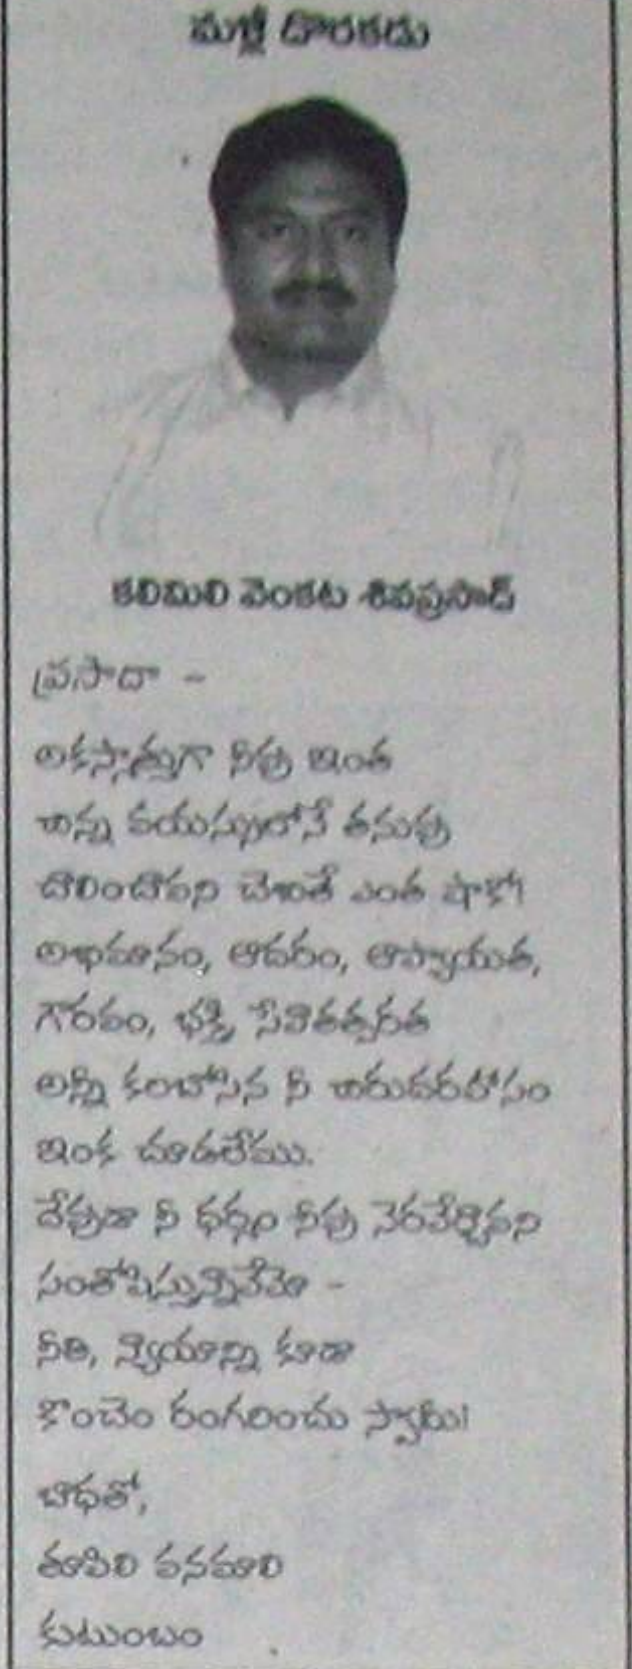 మళ్లీ దొరకడు
కలిమిలి వెంకట శివప్రసాద్
ప్రసాదా -
అకస్మాత్తుగా నీవు ఇంత
చిన్న వయస్సులోనే తనువు
చాలించావని చెబితే ఎంత షాకో!
అభిమానం, ఆదరం, ఆప్యాయత,
గౌరవం, భక్తి, సేవాతత్పరత
అన్నీ కలబోసిన నీ చిరుదరహాసం
ఇంక చూడలేము.
దేవుడా నీ ధర్మం నీవు నెరవేర్చావని
సంతోషిస్తున్నావేమో -
నీతి, న్యాయాన్ని కూడా
కొంచెం రంగరించు స్వామి!
బాధతో,
తూపిలి వనమాలి
కుటుంబం